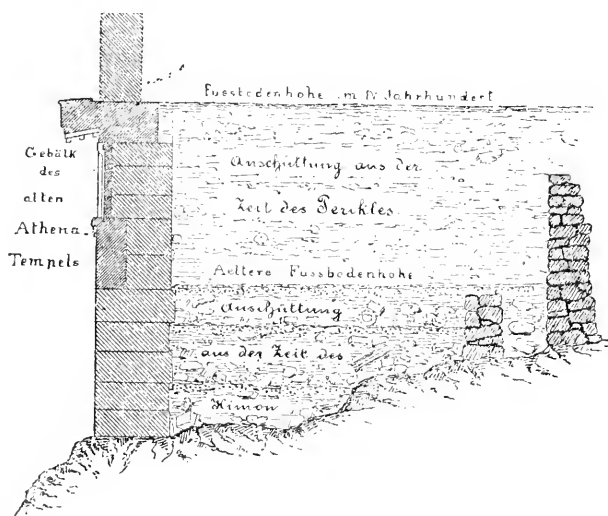 Fussbodenhöhe im IV Jahrhundert
Gebälk
des
alten
Athena-
Tempels
Anschüttung aus der
Zeit des Perikles
Aeltere Fussbodenhöhe
Anschüttung
aus der Zeit des
Kimon